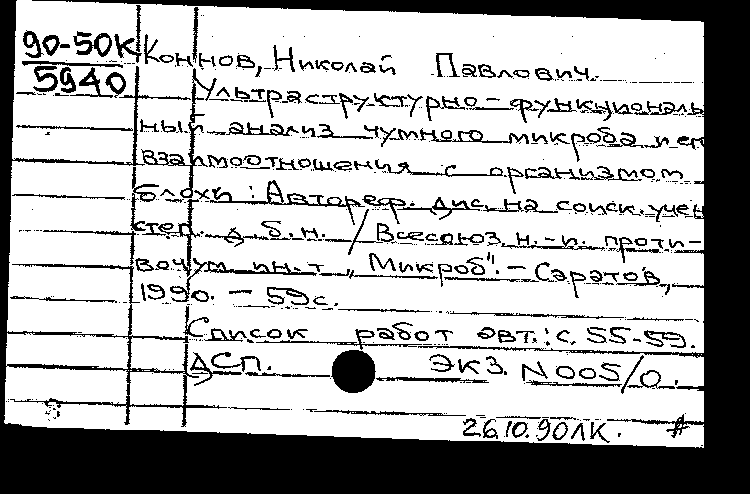 90-50К
5940
Коннов, Николай Павлович.
Ультраструктурно-функциональ
ный анализ чумного микроба и ег
взаимоотношения с организмом
блохи: Автореф. дис. на соиск. учен
степ. д. б. н. / Всесоюз. н.-и. проти-
вочум. ин-т „Микроб". - Саратов,
1990. - 59 с.
Список работ авт.: с. 55-59.
ДСП. ЭКЗ. N 005/0.
26.10.90 ЛК.